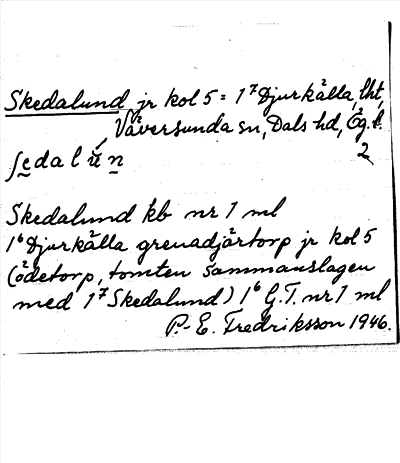 Skedalund jr kol 5 = 1⁷ Djurkälla, lht,
Väversunda sn, Dals hd, Ög. l.
2
Skedalund kb nr 1 ml
1⁶ Djurkälla grenadjärtorp jr kol 5
(ödetorp, tomten sammanslagen
med 1⁷ Skedalund) 1⁶ G.T. nr 1 ml
P.-E. Fredriksson 1946.